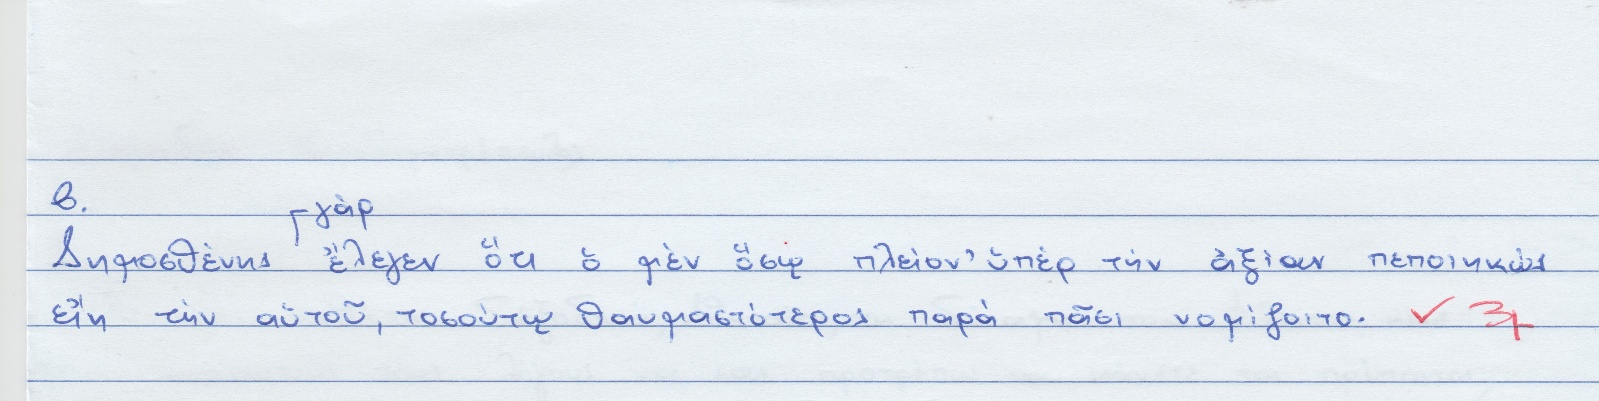 β.
γὰρ
Δημοσθένης ἔλεγεν ὅτι ὁ μὲν ὅσῳ πλείον' ὑπὲρ τὴν ἀξίαν πεποιηκὼς
εἴη τὴν αὑτοῦ, τοσούτῳ θαυμαστότερος παρὰ πᾶσι νομίζοιτο. ✓ 3μ